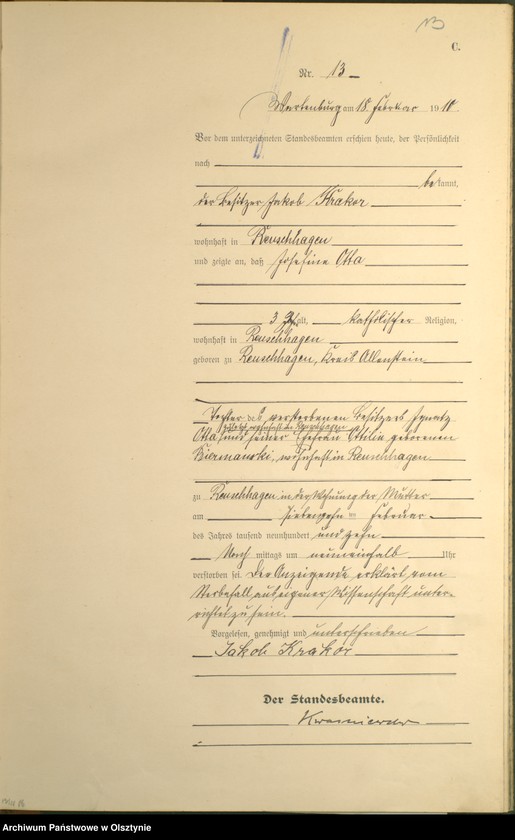 13
C.
Nr. 13
Wartenburg am 18. Februar 1910
Vor dem unterzeichneten Standesbeamten erschien heute, der Persönlichkeit
nach
bekannt,
der Besitzer Jakob Krakor
wohnhaft in Reuschhagen
und zeigte an, daß Josefine Otta
3 alt, katholischer Religion,
wohnhaft in Reuschhagen
geboren zu Reuschhagen, Kreis Allenstein
Tochter des verstorbenen Besitzers Ignatz
zuletzt wohnhaft in Reuschhagen
Otta und seiner Ehefrau Ottilie geborenen
wohnhaft in Reuschhagen
zu Reuschhagen in der Wohnung der Mutter
am siebzehn ten Februar
des Jahres tausend neunhundert und zehn
Nach mittags um neuneinhalb Uhr
verstorben sei. Der Anzeigende erklärt vom
Sterbefall aus eigener Wissenschaft unter-
richtet zu sein.
Vorgelesen, genehmigt und unterschrieben
Jakob Krakor
Der Standesbeamte.
Archiwum Państwowe w Olsztynie